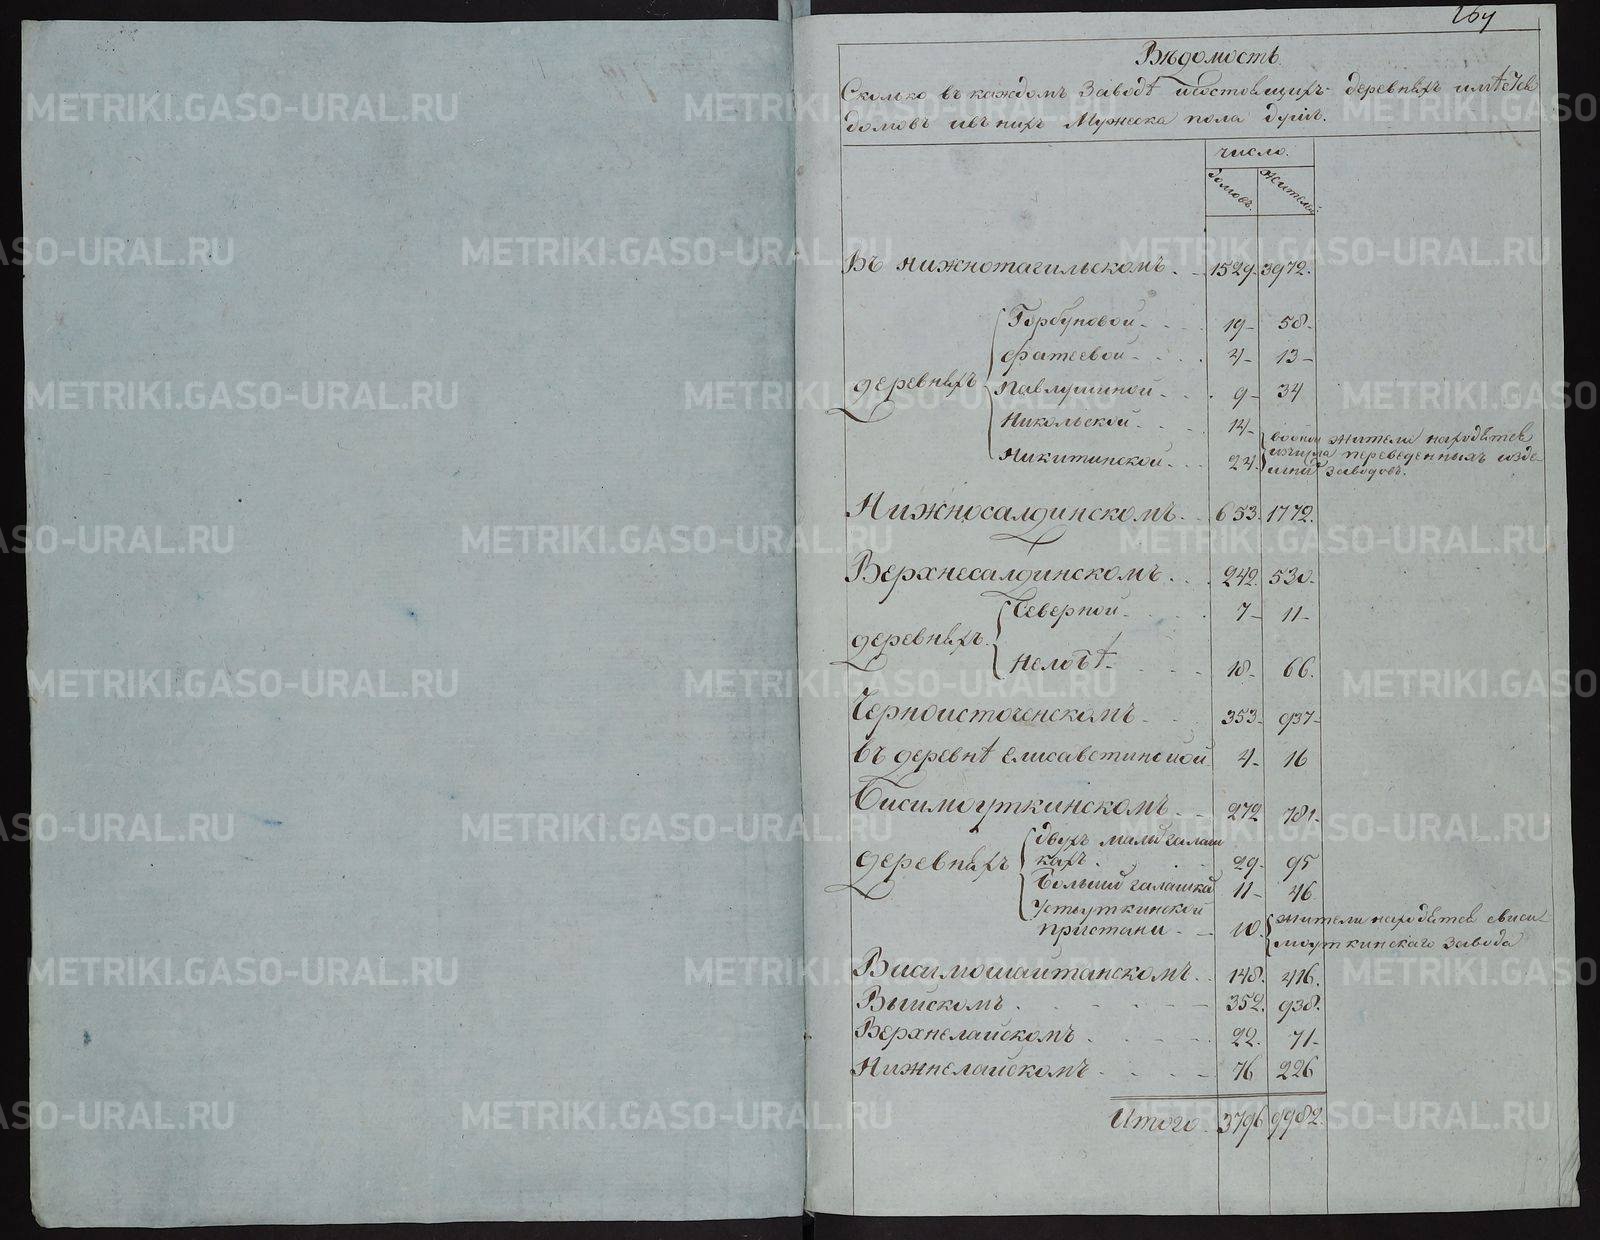 264
Вѣдомость
Сколько въ каждомъ заводѣ исостоящихъ деревняхъ имѣется
домовъ ивъ нихъ Мужеска пола душъ.
число.
домовъ. жителей.
Въ нижнотагильскомъ. 1529. 3972.
Горбуновой 19 58
фатеевой 4 13
деревняхъ Павлушиной 9 34
Никольской 14
воныи жители находятся
Никитинской 24 изчисла переведенныхъ изде
шний заводовъ.
Нижносалдинскомъ 653. 1772.
Верхнесалдинскомъ 242. 530.
Северной 7 11
деревняхъ
Нелобѣ 18 66.
Черноисточенскомъ 353 937
въ деревнѣ Елисаветинской 4 16
Висимоуткинскомъ 272 781
двухъ малых галаш
деревняхъ кахъ. 29 95
Большй галашка 11 46
Устьуткинской
пристани 10. жители находятся свиси
моуткинскаго завода
Висимошайтанскомъ 148. 416.
Выйскомъ 352. 938.
Верхнелайскомъ 22. 71
Нижнелайскомъ 76 226
Итого 3796 9982.
METRIKI.GASO-URAL.RU